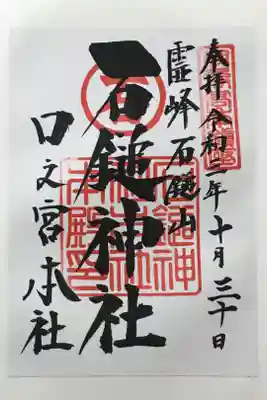 奉拝 令和二年十月三十日
霊峰 石鎚山
石鎚神社
口之宮本社